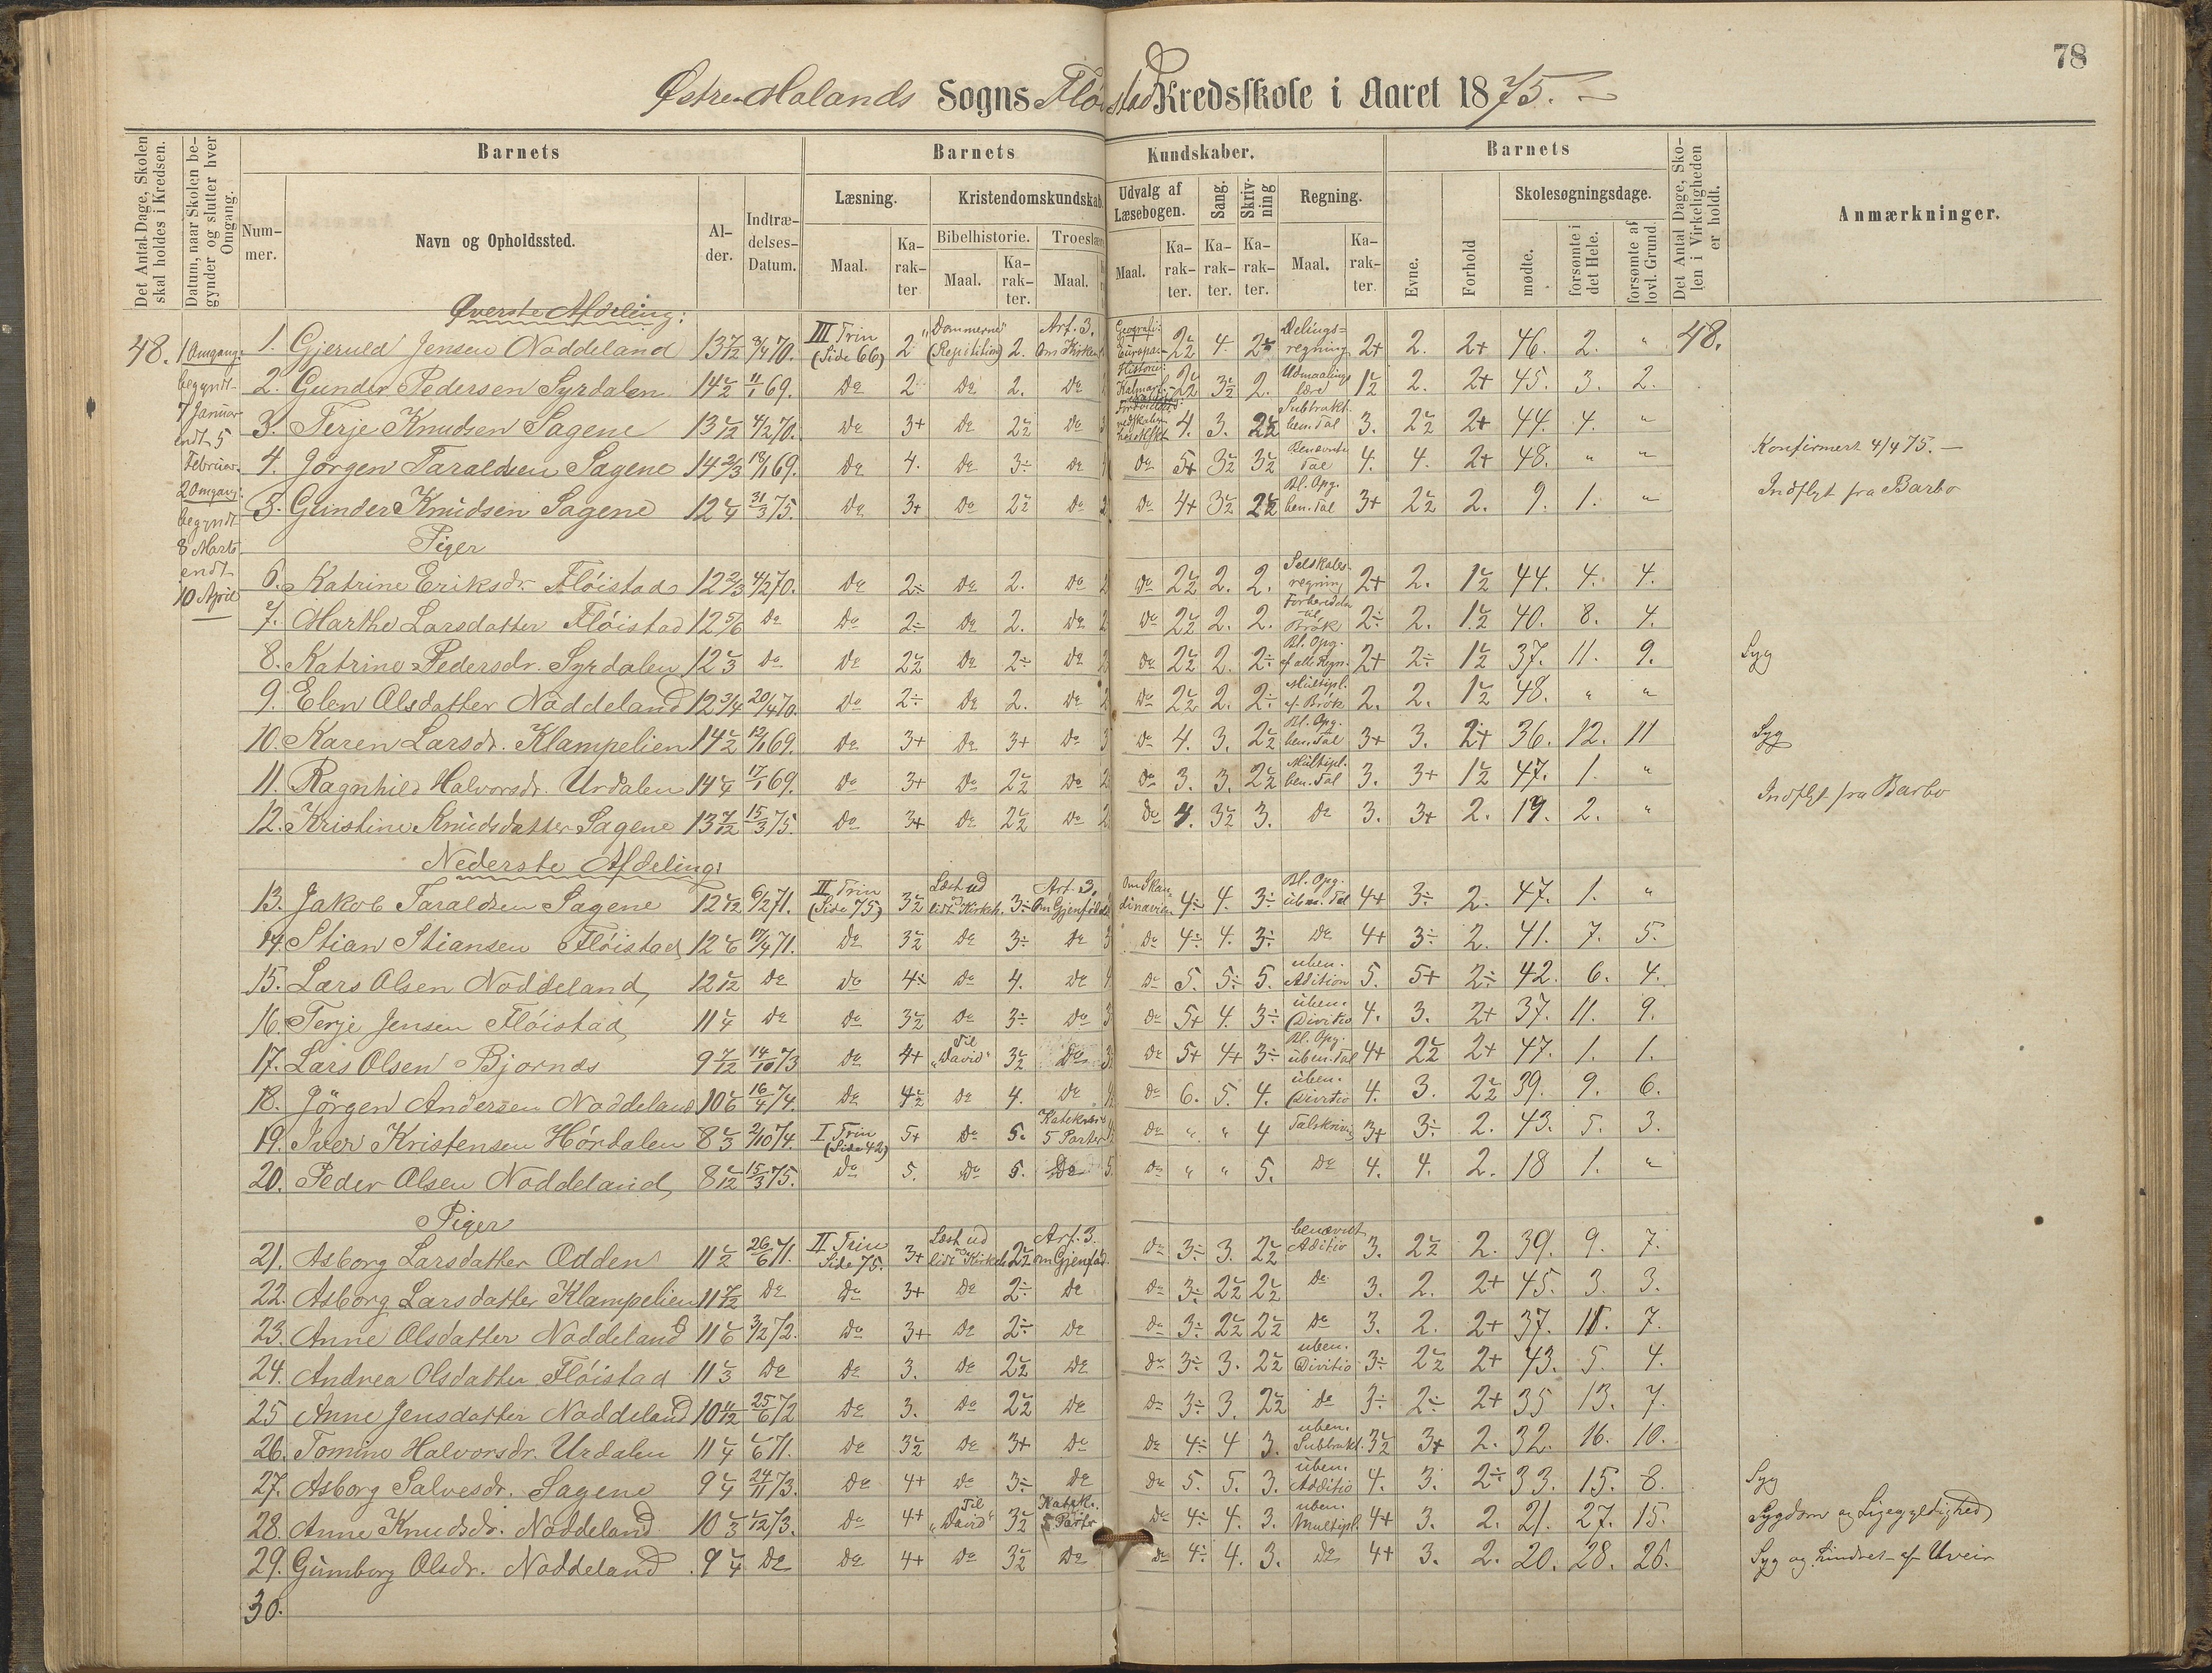 78
Østre Molands Sogns Fløistad Kredsskole i Aaret 1875.
Det Antal Dage, Skolen skal holdes i Kredsen.
Datum, naar Skolen begynder og slutter hver Omgang.
Barnets
Nummer.
Navn og Opholdssted.
Alder.
Indtrædelses-Datum.
Barnets Kundskaber.
Læsning.
Maal.
Karakter
Kristendomskundskab.
Bibelhistorie.
Maal.
Karakter.
Troeslære
Maal.
Udvalg af Læsebogen.
Maal.
Karakter.
Sang.
Karakter.
Skrivning
Karakter.
Regning.
Maal.
Karakter.
Barnets
Evne.
Forhold
Skolesøgningsdage.
mødte.
forsømte i det Hele.
forsømte af lovl. Grund.
Det Antal Dage, Skolen i Virkeligheden er holdt.
Anmærkninger.
48.
1 Omgang:
begyndt
7 Januar
endt 5
Februar.
2 Omgang:
begyndt
8 Marts
endt
10 April
Øverste Afdeling:
1. Gjeruld Jensen Noddeland 13 7/12 8/4 70. III Trin (Side 66) 2 "Dommerne" (Repitition) 2. Art. 3. Om Kirken Geografi: Europa 4. Delingsregning 2+ 2. 2+ 46. 2. " 48.
2. Gunder Pedersen Syrdalen 14 1/2 11/1 69. Do 2 Do 2. Do Historie: Kalmark. 2. Udmaalingslære 2. 2+ 45. 3. 2.
3. Terje Knudsen Sagene 13 4/2 70. Do 3+ Do Do 4. 3. Subtrakt. ben. Tal 3. 2+ 44. 4. "
4. Jörgen Taraldsen Sagene 14 2/3 18/1 69. Do 4. Do 3÷ Do Do 5+ Benævnte Tal 4. 4. 2+ 48. " " Konfirmert 4/4 75.
5. Gunder Knudsen Sagene 12 31/3 75. Do 3+ Do Do Do 4+ Bl. Opg. ben. Tal 3+ 2. 9. 1. " Indflyt fra Barbo
Piger
6. Katrine Eriksdr. Flöistad 12 2/3 4/2 70. Do 2÷ Do 2. Do Do 2. 2. Selskabsregning 2+ 2. 44. 4. 4.
7. Marthe Larsdatter Flöistad 12 5/6 Do Do 2÷ Do 2. Do Do 2. 2. til Brök 2÷ 2. 40. 8. 4.
8. Katrine Pedersdr. Syrdalen Do Do Do 2÷ Do Do 2. 2÷ Bl. Opg. af alle Regn. 2+ 2÷ 37. 11. 9. Syg
9. Elen Olsdatter Noddeland 12 3/4 20/4 70. Do 2÷ Do 2. Do Do 2. 2÷ Multipl. af Brök 2. 2. 48. " "
10. Karen Larsdr. Klampelien 14 12/1 69. Do 3+ Do 3+ Do Do 4. 3. Bl. Opg. ben. Tal 3+ 3. 2+ 36. 12. 11 Syg
11. Ragnhild Halvorsdr. Urdalen 14 17/1 69. Do 3+ Do Do Do 3. 3. Multipl. ben. Tal 3. 3+ 47. 1. "
12. Kristine Knudsdatter Sagene 13 7/12 15/3 75. Do 3+ Do Do Do 4. 3. Do 3. 3+ 2. 19. 2. " Indflyt fra Barbo
Nederste Afdeling:
13. Jakob Taraldsen Sagene 12 6/2 71. II Trin (Side 75) Læst ud lidt Kirkeh. 3÷ Art. 3. Om Gjenföd Om Skandinavien 4÷ 4. 3÷ Bl. Opg. uben. Tal 4+ 3÷ 2. 47. 1. "
14. Stian Stiansen Flöistad 12 71. Do Do 3÷ Do Do 4÷ 4. 3÷ Do 4+ 3÷ 2. 41. 7. 5.
15. Lars Olsen Noddeland 12 Do Do 4÷ Do 4. Do Do 5. 5÷ 5. uben. Adition 5. 5+ 2÷ 42. 6. 4.
16. Terje Jensen Flöistad 11 Do Do Do 3÷ Do Do 5+ 4. 3÷ uben. Divitio 4. 3. 2+ 37. 11. 9.
17. Lars Olsen Bjornås 9 7/12 14/10 73 Do 4+ Til "David" Do Do 5+ 4+ 3÷ Bl. Opg. uben. Tal 4+ 2+ 47. 1. 1.
18. Jörgen Andersen Noddeland 10 16/4 74. Do Do 4. Do Do 6. 5. 4. uben. Divitio 4. 3. 39. 9. 6.
19. Iver Kristensen Hördalen 8 2/10 74. I Trin (Side 42) 5+ Do 5. 5 Parter Do " " 4 Talskrivn. 3+ 3÷ 2. 43. 5. 3.
20. Peder Olsen Noddeland 8 15/3 75. Do 5. Do 5. Do Do " " 5. Do 4. 4. 2. 18 1. "
Piger
21. Asborg Larsdatter Odden 11 26/6 71. II Trin Side 75. 3+ Læst ud lidt Kirkeh. Art. 3. om Gjenföd. Do 3÷ 3. benævnt Aditio 3. 2. 39. 9. 7.
22. Asborg Larsdatter Klampelien 11 7/12 Do Do 3+ Do 2÷ Do Do 3÷ Do 3. 2. 2+ 45. 3. 3.
23. Anne Olsdatter Noddeland 11 3/2 72. Do 3+ Do 2÷ Do Do 3÷ Do 3. 2. 2+ 37. 11. 7.
24. Andrea Olsdatter Flöistad 11 Do Do 3. Do Do Do 3÷ 3. uben. Divitio 3÷ 2+ 43. 5. 4.
25 Anne Jensdatter Noddeland 10 11/12 25/6 72 Do 3. Do Do Do 3÷ 3. Do 3÷ 2÷ 2+ 35 13. 7.
26. Tomine Halvorsdr. Urdalen 11 71. Do Do 3+ Do Do 4÷ 4 3. uben. Subtrakt. 3+ 2. 32. 16. 10.
27. Asborg Salvesdr. Sagene 9 24/11 73. Do 4+ Do 3÷ Do Do 5. 5. 3. uben. Additio 4. 3. 2÷ 33. 15. 8. Syg
28. Anne Knudsdr. Noddeland 10 73. Do 4+ Til "David" Katek. 5 Parter Do 4÷ 4. 3. uben. Multipl. 4+ 3. 2. 21. 27. 15. Sygdom og Ligegyldighed
29. Gumborg Olsdr. Noddeland 9 Do Do 4+ Do Do Do 4÷ 4. 3. Do 4+ 3. 2. 20. 28. 26. Syg og hindret af Uveir
30.